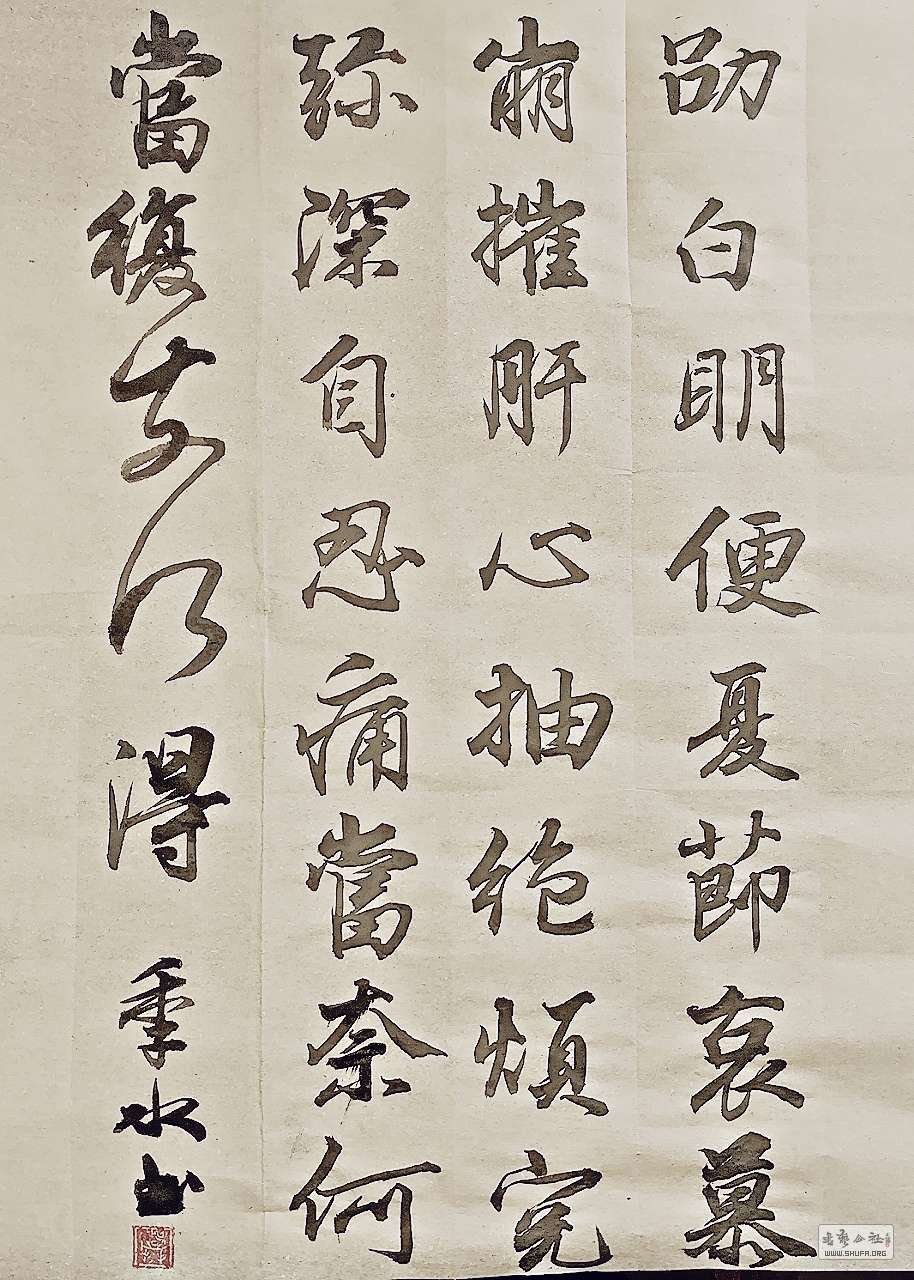 劭白明便夏節哀慕
崩摧肝心抽絶煩冤
弥深自忍痛當奈何
當復奈何得
季水书
WWW.SHUFA.ORG